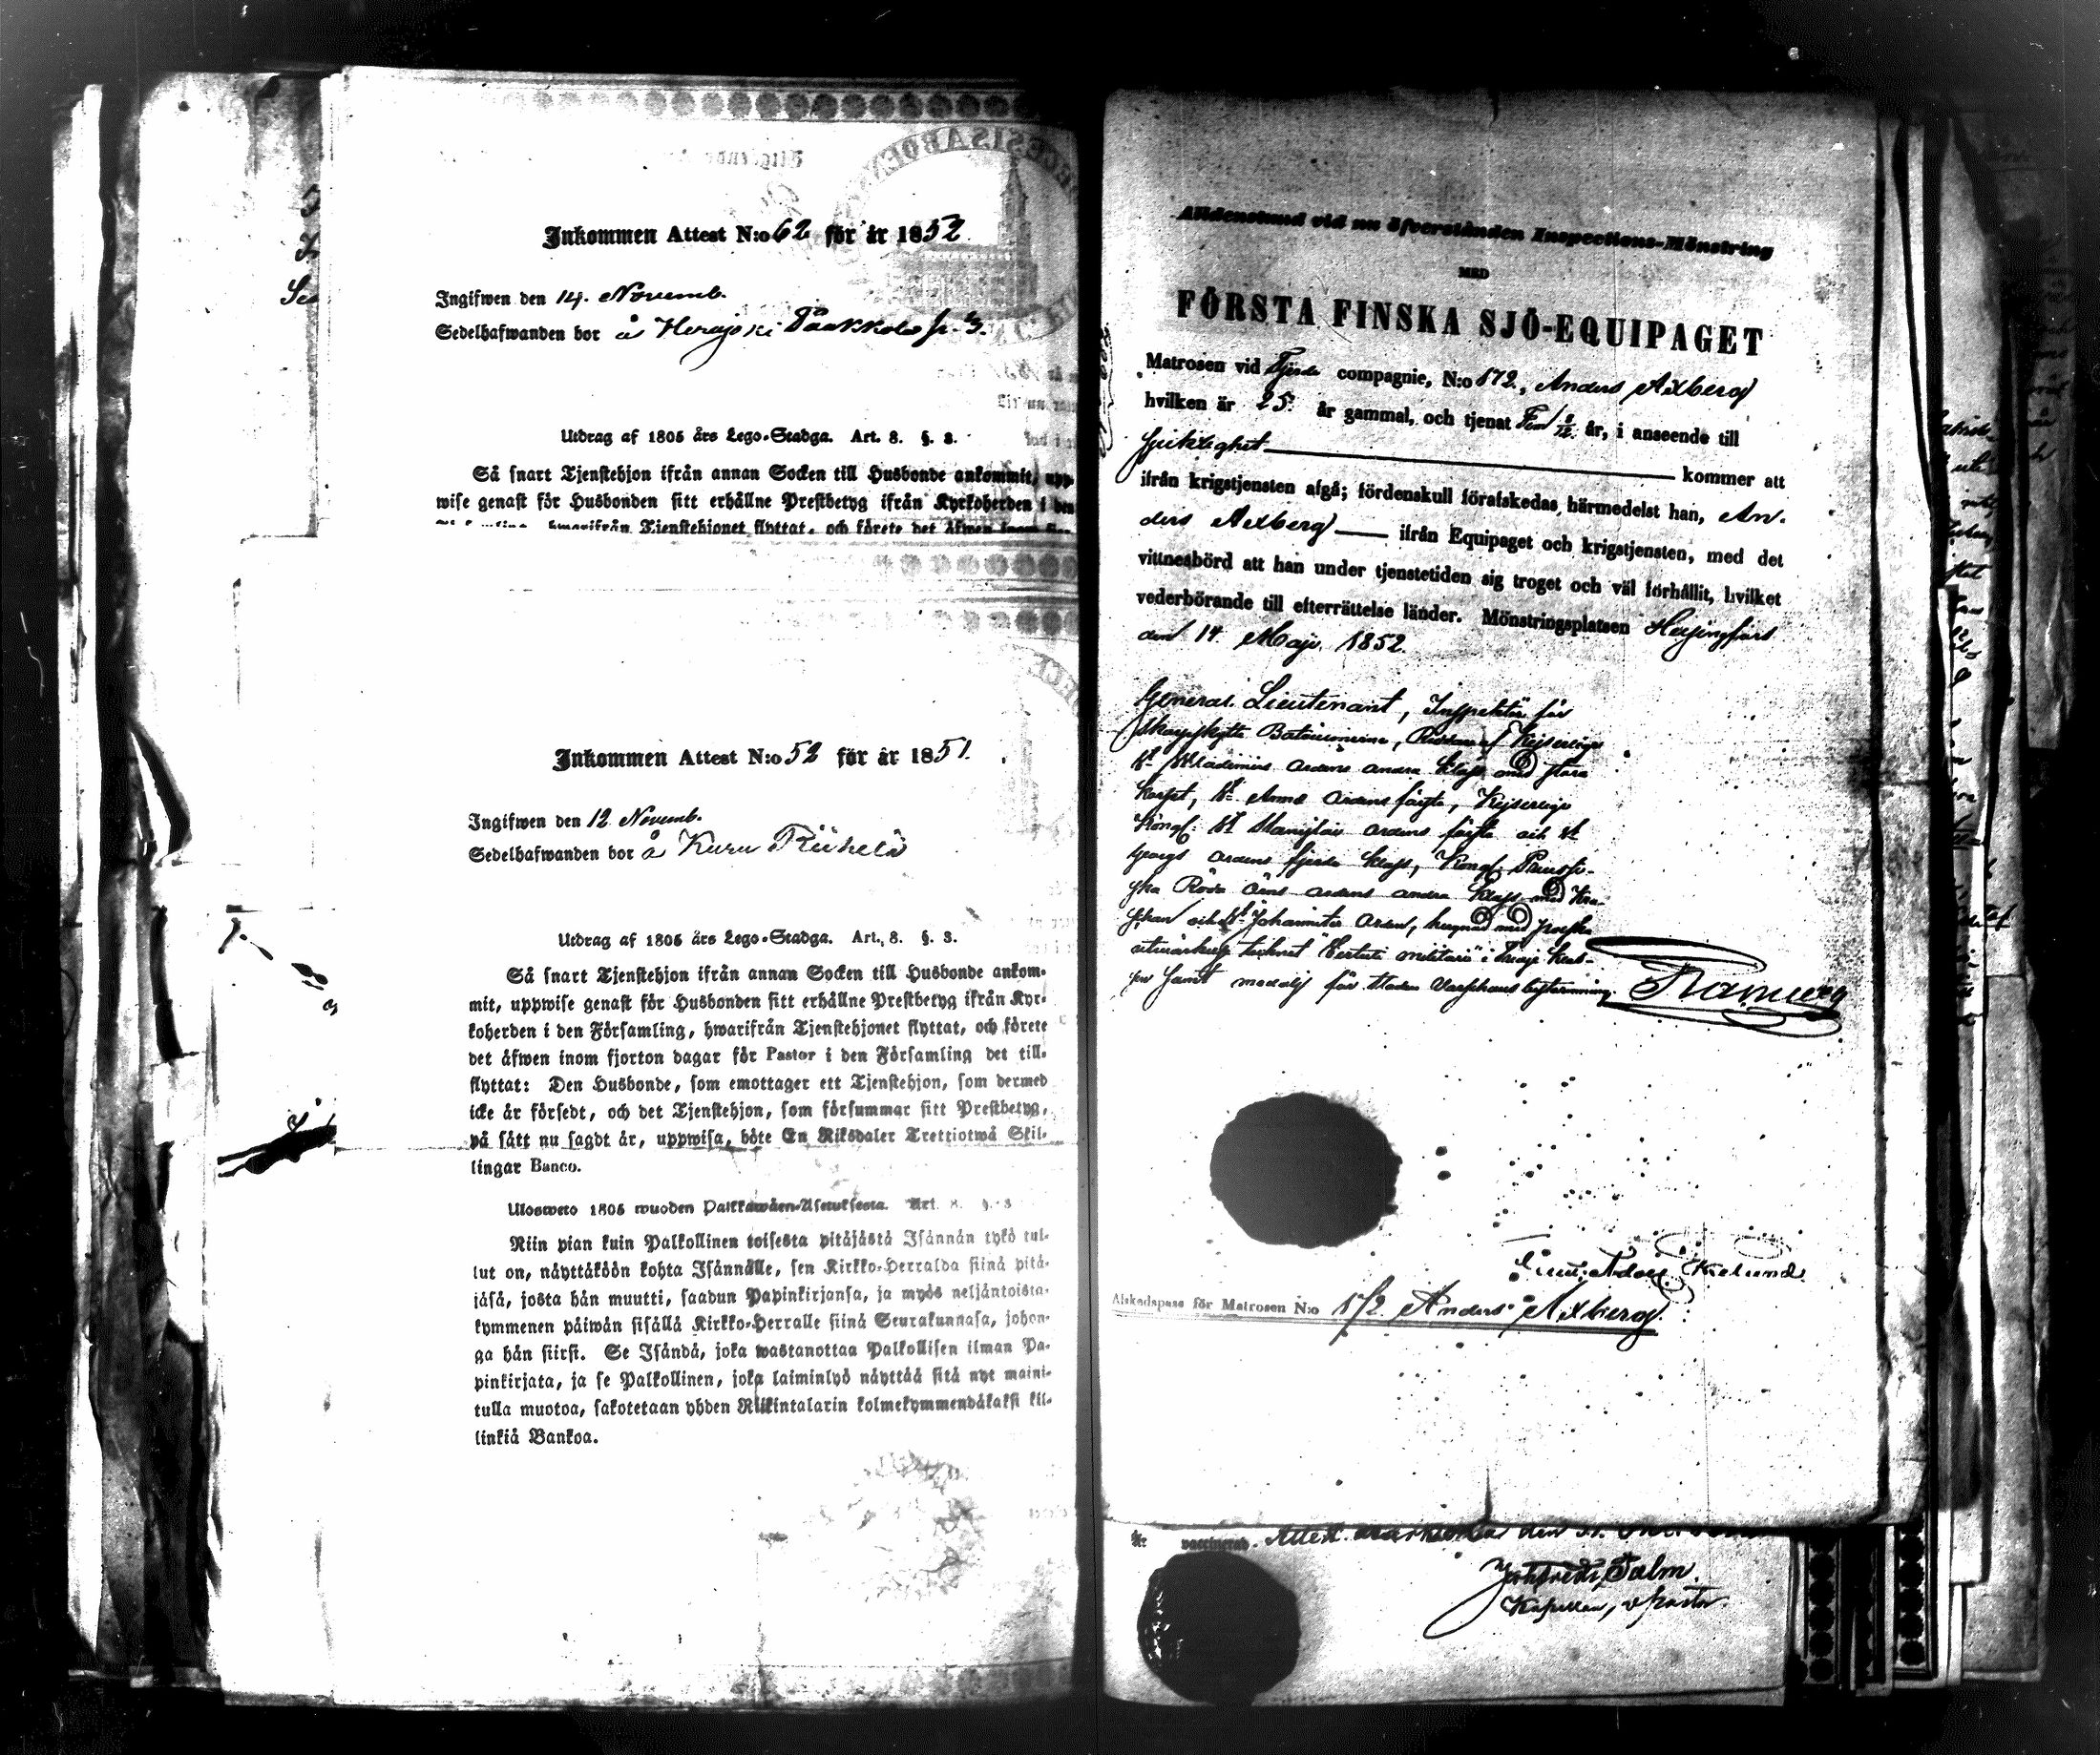 Inkommen Attest N:o 62 för år 1852
Ingifwen den 14. Novemb.
Sedelhafwanden bor å
Utdrag af 1805 års Lego-Stadga. Art. 8. §. 3.
Så snart Tjenstehjon ifrån annan Socken till Husbonde ankommit, upp-
wise genast för Husbonden sitt erhållne Prestbetyg ifrån Kyrkoherden i den
hwarifrån Tjenstehjonet flyttat, och förete det äfwen inom
Inkommen Attest N:o 52 för år 1851.
Ingifwen den 12 Novemb.
Sedelhafwanden bor å Kuru
Utdrag af 1805 års Lego-Stadga. Art. 8. §. 3.
Så snart Tjenstehjon ifrån annan Socken till Husbonde ankom-
mit, uppwise genast för Husbonden sitt erhållne Prestbetyg ifrån Kyr-
koherden i den Församling, hwarifrån Tjenstehjonet flyttat, och förete
det äfwen inom fjorton dagar för Pastor i den Församling det till-
flyttat: Den Husbonde, som emottager ett Tjenstehjon, som dermed
icke är försedt, och det Tjenstehjon, som försummar sitt Prestbetyg,
på sätt nu sagdt är, uppwisa, böte En Riksdaler Trettiotwå Skil-
lingar Banco.
Ulosweto 1805 wuoden Palkkawäen-Asetuksesta. Art. 8. §. 3
Niin pian kuin Palkollinen toisesta pitäjästä Isännän tykö tul-
lut on, näyttäköön kohta Isännälle, sen Kirkko-Herralda siinä pitä-
jäsä, josta hän muutti, saadun Papinkirjansa, ja myös neljäntoista-
kymmenen päiwän sisällä Kirkko-Herralle siinä Seurakunnasa, johon-
ga hän siirsi. Se Isändä, joka wastanottaa Palkollisen ilman Pa-
pinkirjata, ja se Palkollinen, joka laiminlyö näyttää sitä nyt maini-
tulla muotoa, sakotetaan yhden Riikintalarin kolmekymmendäkaksi kil-
linkiä Bankoa.
Alldenstund vid nu öfverstånden Inspections-Mönstring
MED
FÖRSTA FINSKA SJÖ-EQUIPAGET
Matrosen vid Fjerde compagnie, N:o 172, Anders Axberg
hvilken är 25. år gammal, och tjenat Fem år, i anseende till
Sjuklighet kommer att
ifrån krigstjensten afgå; fördenskull förafskedas härmedelst han, An-
ders Axberg ifrån Equipaget och krigstjensten, med det
vittnesbörd att han under tjenstetiden sig troget och väl förhållit, hvilket
vederbörande till efterrättelse länder. Mönstringsplatsen Helsingfors
den 14 Maji 1852.
General Lieutenant, Inspektör för
Skarpskytte Bataillonerne, Riddare af Kejserlige
St Wladimirs ordens andra klass med stora
korset, St Annæ ordens första, Kejserlige
Kongl. St Stanislai ordens första och St
Georgs ordens fjerde klass, Kongl. Preussi-
ska Röda Örns ordens andra klass med
och St Johanniter Orden,
"Virtuti militari"
samt medalj för Staden Varschaus bestormning. Ramsay
Afskedspass för Matrosen N:o 172 Anders Axberg.
vaccinerad. Attest.
Salm.
Kapellan, v. Pastor.